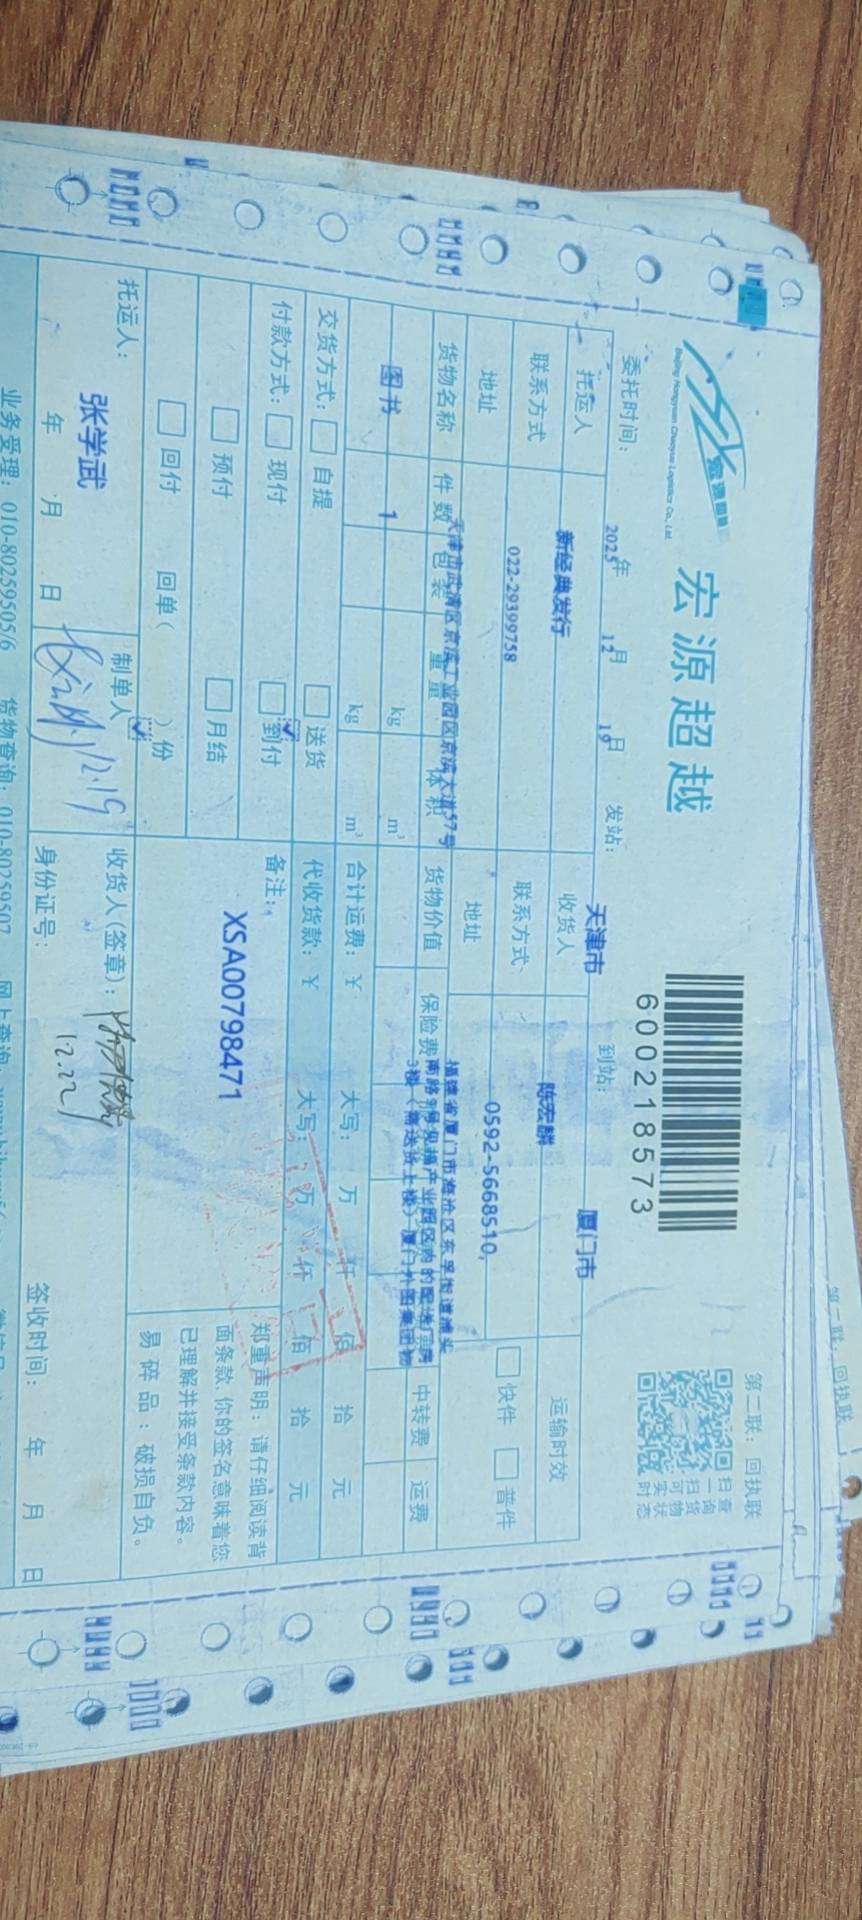 宏源超越
Beijing Hongyuan Chaoyue Logistics Co., Ltd.
宏源超越
600218573
第二联：回执联
扫一扫可实时
查询货物状态
委托时间： 2025年 12月 19日 发站： 天津市 到站： 厦门市
托运人 新经典发行 收货人 陈宏麟 运输时效
联系方式 022-29399758 联系方式 0592-5668510, 快件 普件
地址 天津市武清区京滨工业园区京滨大道57号 地址
福建省厦门市海沧区东孚街道浦头
货物名称 件数 包装 重量 体积 货物价值 保险费 中转费 运费
图书 1 kg m³
kg m³ 合计运费：￥ 大写： 万 仟 佰 拾 元
交货方式： 自提 送货 代收货款：￥ 大写： 万 仟 佰 拾 元
付款方式： 现付 到付 备注：
预付 月结 XSA00798471
回付 回单（ ）份
郑重声明：请仔细阅读背
面条款，你的签名意味着您
已理解并接受条款内容。
易碎品：破损自负。
托运人： 张学武 制单人 12.19 收货人（签章）：
12.22
年 月 日 身份证号： 签收时间： 年 月 日
业务受理：010-80259505/6 货物查询：010-80259507
第二联：回执联